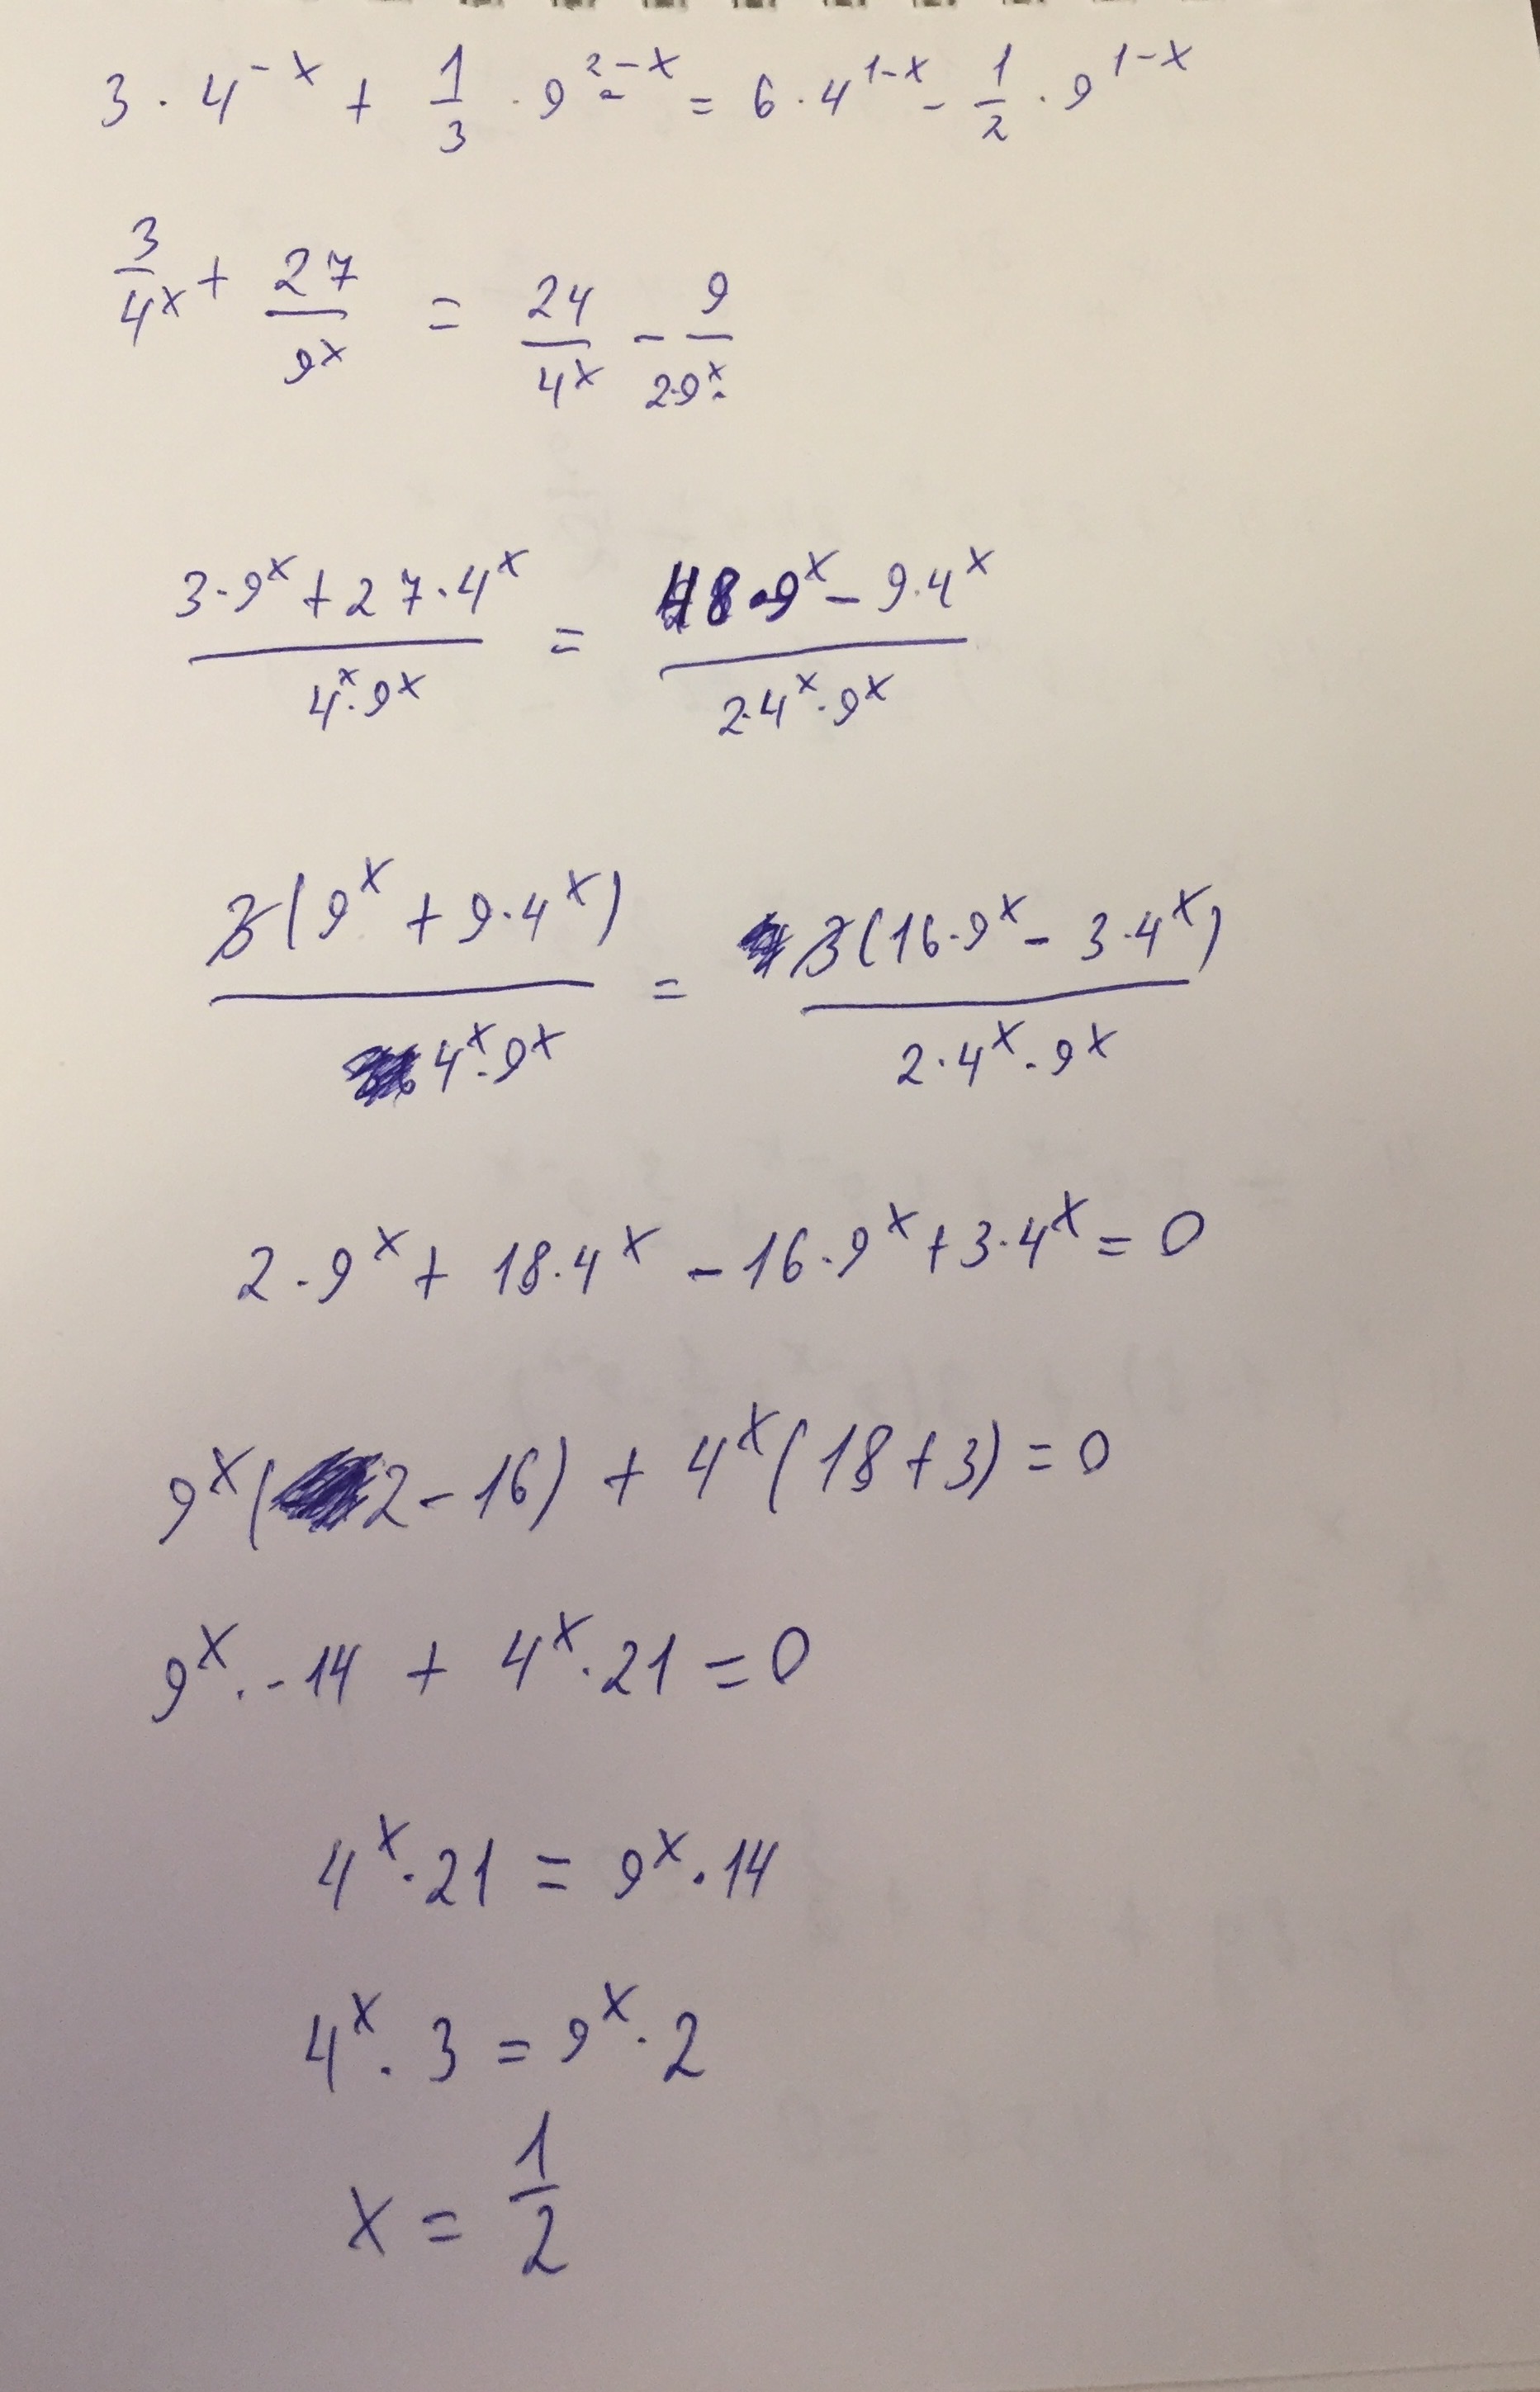 3 · 4^{-x} + \frac{1}{3} · 9^{2-x} = 6 · 4^{1-x} - \frac{1}{2} · 9^{1-x}
\frac{3}{4^x} + \frac{27}{9^x} = \frac{24}{4^x} - \frac{9}{2·9^x}
\frac{3·9^x + 27·4^x}{4^x·9^x} = \frac{48·9^x - 9·4^x}{2·4^x·9^x}
\frac{3(9^x + 9·4^x)}{4^x·9^x} = \frac{3(16·9^x - 3·4^x)}{2·4^x·9^x}
2·9^x + 18·4^x - 16·9^x + 3·4^x = 0
9^x(2-16) + 4^x(18+3) = 0
9^x·-14 + 4^x·21 = 0
4^x·21 = 9^x·14
4^x·3 = 9^x·2
x = \frac{1}{2}